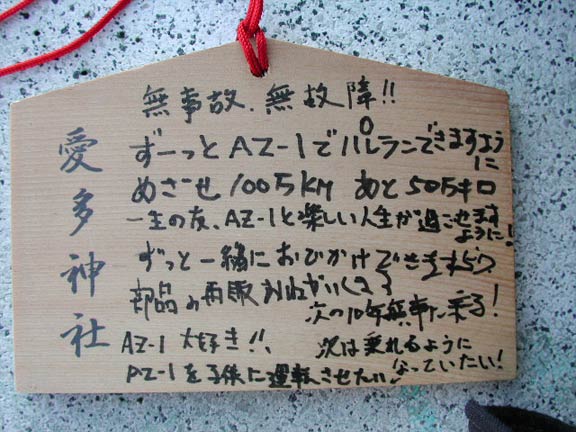 愛多神社
無事故、無故障!!
ずーっとAZ-1でパレランできますように
めざせ100万KM あと50万キロ
一生の友、AZ-1と楽しい人生が過ごせますように!
ずっと一緒におでかけできますように
部品の再販
次の10年無事に乗る!
AZ-1 大好き!!
次は乗れるようになっていたい!
AZ-1を子供に運転させたい